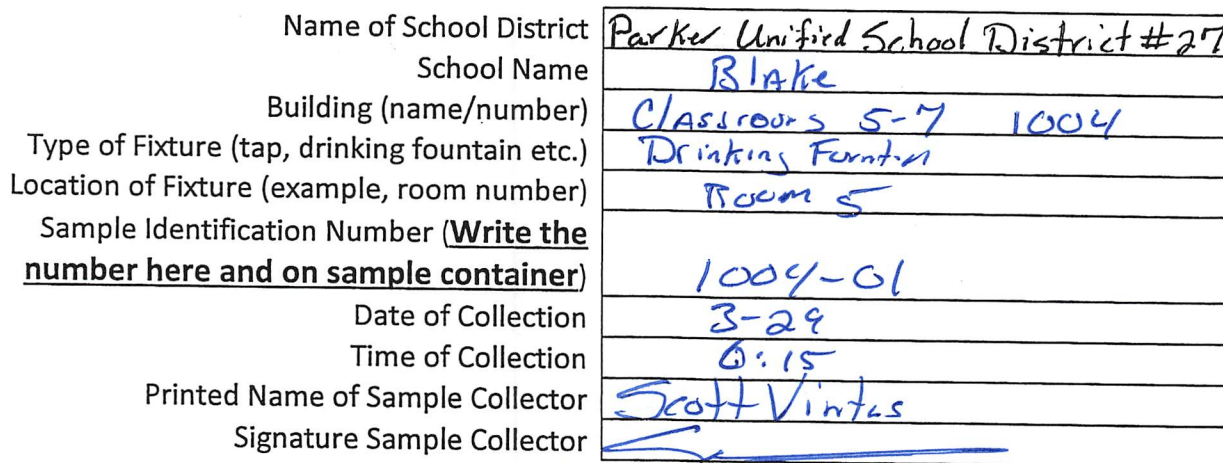 Name of School District Parker Unified School District #27
School Name Blake
Building (name/number) Classrooms 5-7 1004
Type of Fixture (tap, drinking fountain etc.) Drinking
Location of Fixture (example, room number) Room 5
Sample Identification Number (Write the
number here and on sample container) 1004-01
Date of Collection 3-29
Time of Collection 6:15
Printed Name of Sample Collector Scott
Signature Sample Collector